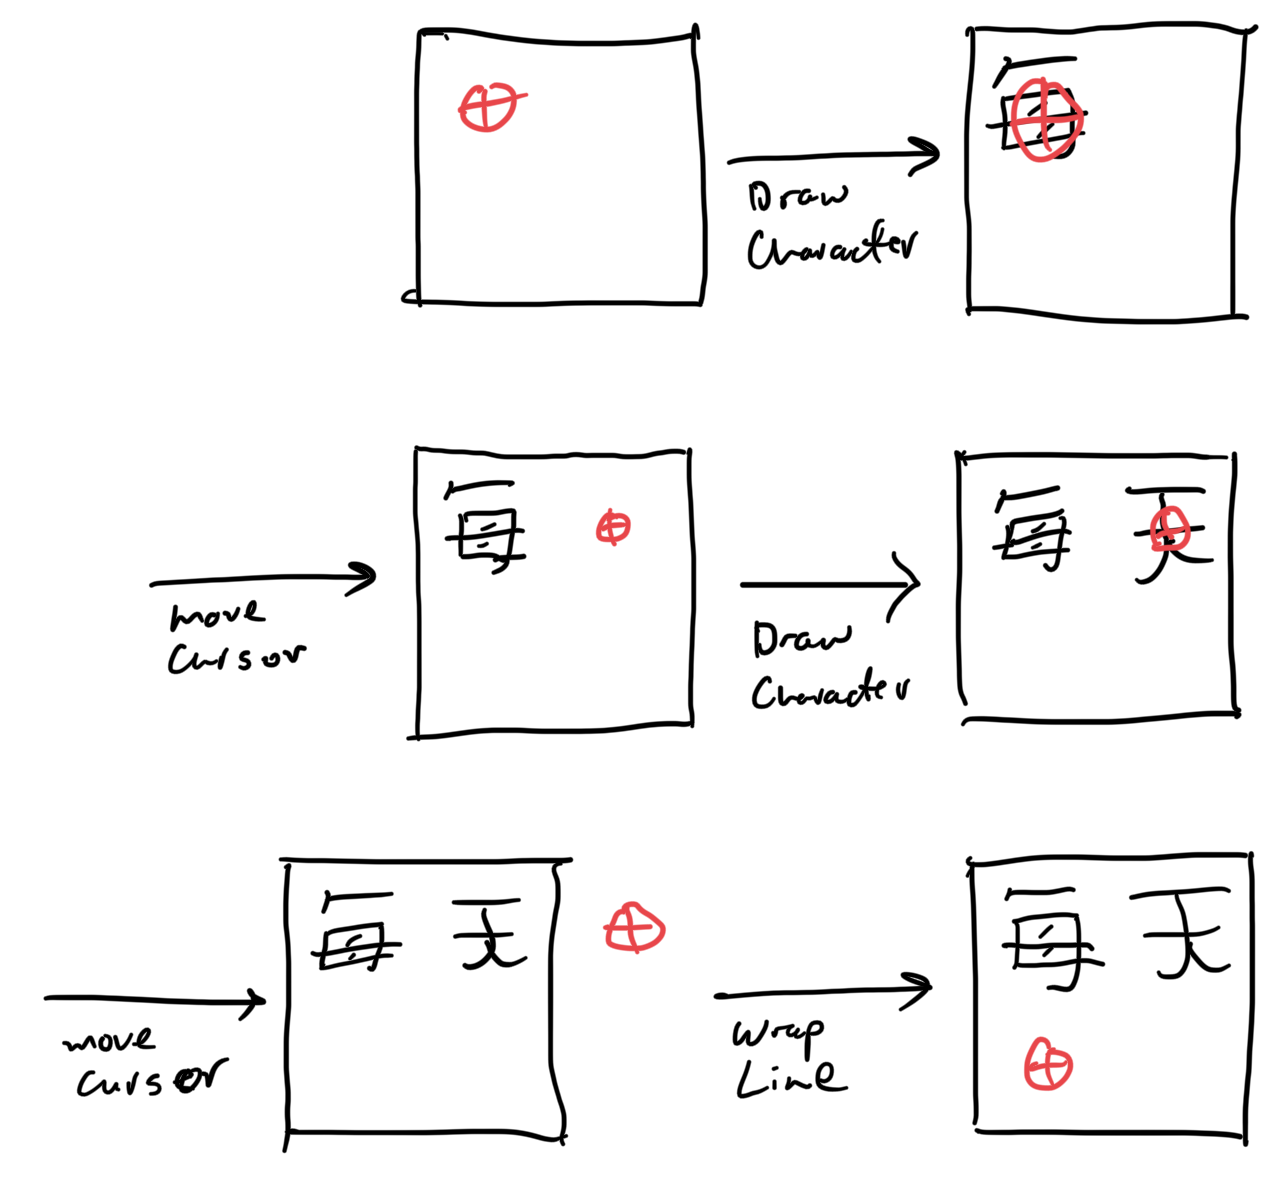 每
Draw
Character
每
每 天
move
Cursor
Draw
Character
每 天
每 天
move
Cursor
Wrap
Line